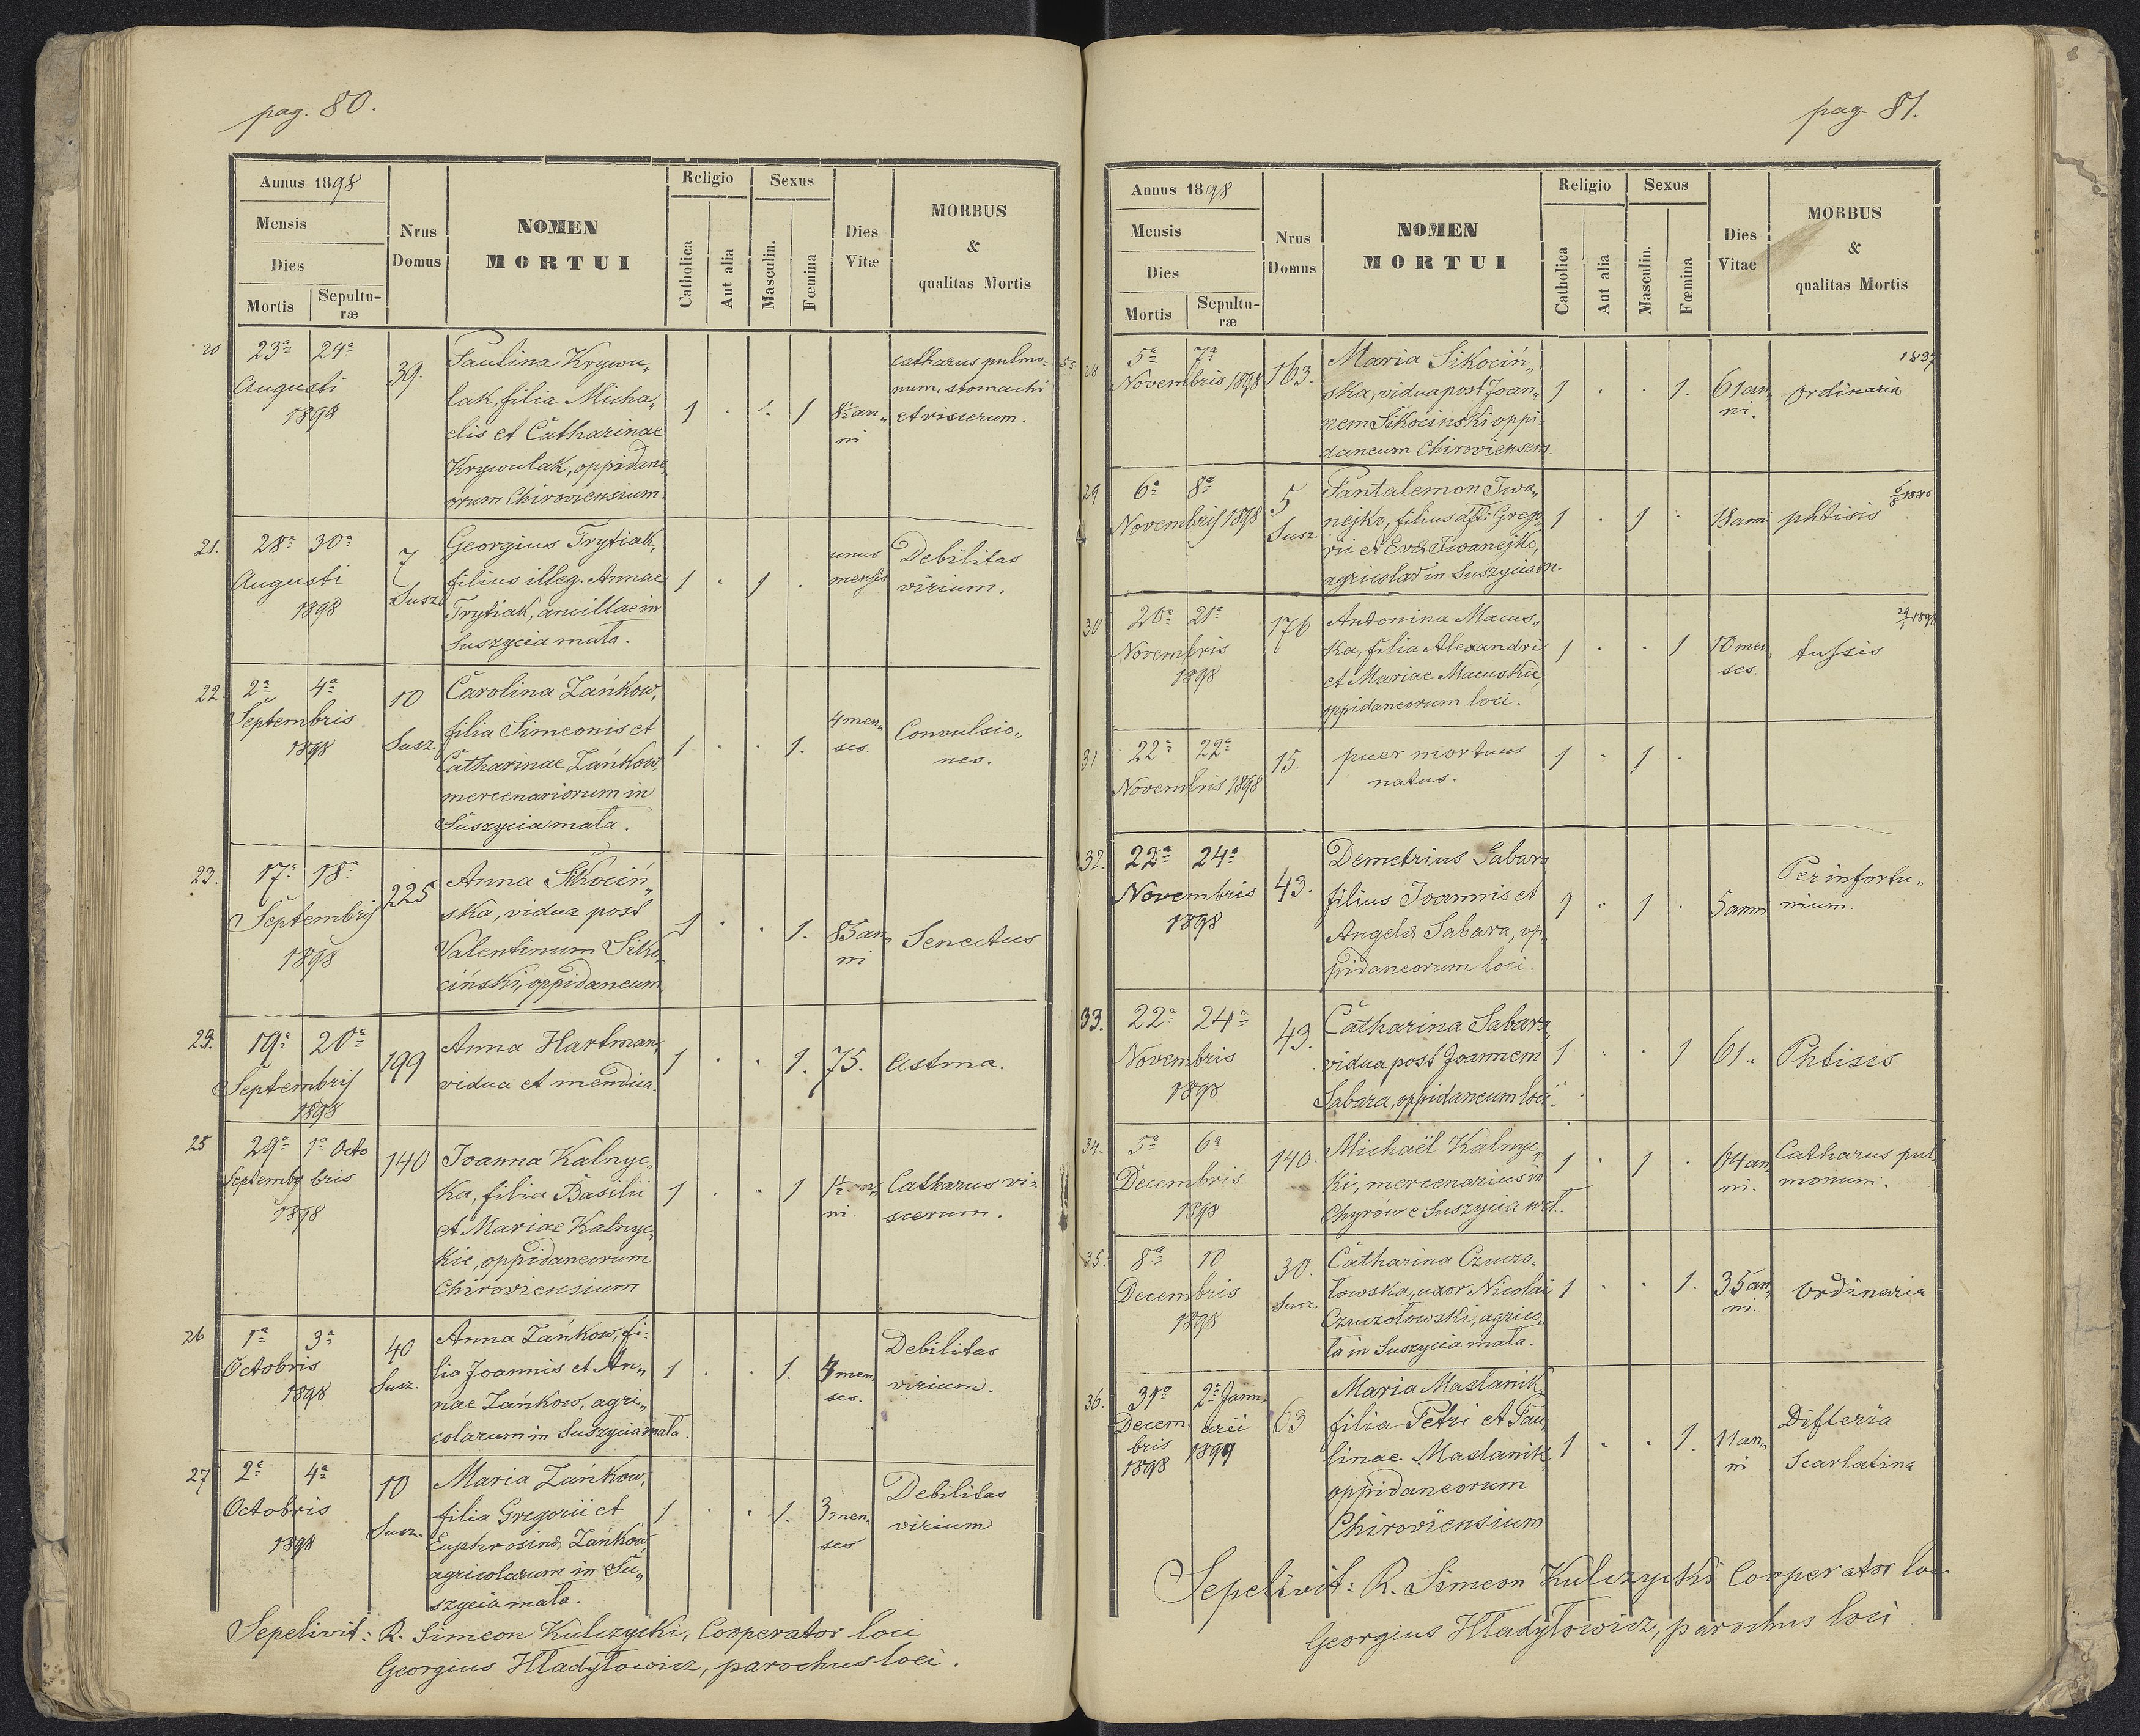 pag. 80.
Annus 1898
Mensis
Dies
Mortis
Sepultu-
ræ
Nrus
Domus
NOMEN
MORTUI
Religio
Catholica
Aut alia
Sexus
Masculin.
Fœmina
Dies
Vitæ
MORBUS
&
qualitas Mortis
20
23ª 24ª
Augusti
1898
39.
Paulina Krywu„
lak, filia Micha„
elis et Catharinae
Krywulak, oppidane„
orum Chiroviensium.
1 . . 1
8½ an„
ni
catharus pulmo-
num, stomachi
et viscerum.
21.
28ª 30ª
Augusti
1898
7
Susz.
Georgius Trytiak,
filius illeg. Annae
Trytiak, ancillae in
Suszycia mała.
1 . 1 .
unus
mensis
Debilitas
virium.
22.
2ª 4ª
Septembris
1898
10
Susz.
Carolina Zańkow,
filia Simeonis et
Catharinae Zańkow,
mercenariorum in
Suszycia mała.
1 . . 1.
4 men„
ses.
Convulsio„
nes.
23.
17ª 18ª
Septembris
1898
225
Anna Sikociń„
ska, vidua post
Valentinum Siko„
ciński, oppidaneum
1 . . 1.
85 an„
ni
Senectus
24.
19ª 20ª
Septembris
1898
199
Anna Hartman,
vidua et mendica.
1 . . 1.
75.
Astma.
25
29ª 1ª Octo
Septemb bris
1898
140
Joanna Kalnyc„
ka, filia Basilii
et Mariae Kalnyc„
kie, oppidaneorum
Chiroviensium
1 . . 1
1½ an„
ni.
Catharus vi-
scerum.
26
1ª 3ª
Octobris
1898
40
Susz.
Anna Zańkow, fi-
lia Joannis et An„
nae Zańkow, agri„
colarum in Suszycia mała.
1 . . 1.
4 men„
ses.
Debilitas
virium.
27
2ª 4ª
Octobris
1898
10
Susz.
Maria Zańkow,
filia Gregorii et
Euphrosinæ Zańkow,
agricolarum in Su„
szycia mała.
1 . . 1.
3 men„
ses
Debilitas
virium
Sepelivit: R. Simeon Kulczycki, Cooperator loci
Georgius Hładyłowicz, parochus loci.
pag. 81.
Annus 1898
Mensis
Dies
Mortis
Sepultu-
ræ
Nrus
Domus
NOMEN
MORTUI
Religio
Catholica
Aut alia
Sexus
Masculin.
Fœmina
Dies
Vitae
MORBUS
&
qualitas Mortis
28
5ª 7ª
Novembris 1898
163.
Maria Sikociń„
ska, vidua post Joan„
nem Sikocinski oppi-
daneum Chiroviensem.
1 . . 1.
61 an„
ni.
ordinaria
1837
29
6ª 8ª
Novembris 1898
5
Susz.
Pantalemon Iwa„
nejko, filius dfti Grego„
rii et Evæ Iwanejko,
agricolar in Suszycia m.
1 . 1 .
18 anni
phtisis
6/8 1880
30
20ª 21ª
Novembris
1898
176
Antonina Macus„
ka, filia Alexandri
et Mariae Macuskie,
oppidaneorum loci.
1 . . 1
10 men„
ses.
tussis
29/1 1898
31
22ª 22ª
Novembris 1898
15.
puer mortuus
natus.
1 . 1 .
32.
22ª 24ª
Novembris
1898
43.
Demetrius Sabara
filius Joannis et
Angelæ Sabara, op„
pidaneorum loci.
1 . 1 .
5 anni
Per infortu„
nium.
33.
22ª 24ª
Novembris
1898
43.
Catharina Sabara,
vidua post Joannem
Sabara, oppidaneum loci.
1 . . 1
61.
Phtisis
34.
5ª 6ª
Decembris
1898
140.
Michaël Kalnyc„
ki, mercenarius in
Chyrów e Suszycia wel.
1 . 1 .
64 an„
ni.
Catharus pul„
monum.
35.
8ª 10
Decembris
1898
30.
Susz.
Catharina Czuczo„
łowska, uxor Nicolai
Czuczołowski, agrico„
la in Suszycia mała.
1 . . 1.
35 an„
ni.
ordinaria
36.
31ª 2ª Janu„
Decem. arii
bris 1899
1898
63
Maria Maslanik
filia Petri et Pau„
linae Maslanik,
oppidaneorum
Chiroviensium
1 . . 1.
11 an„
ni
Difteria
Scarlatina
Sepelivit: R. Simeon Kulczycki Cooperator loci
Georgius Hładyłowicz, parochus loci.